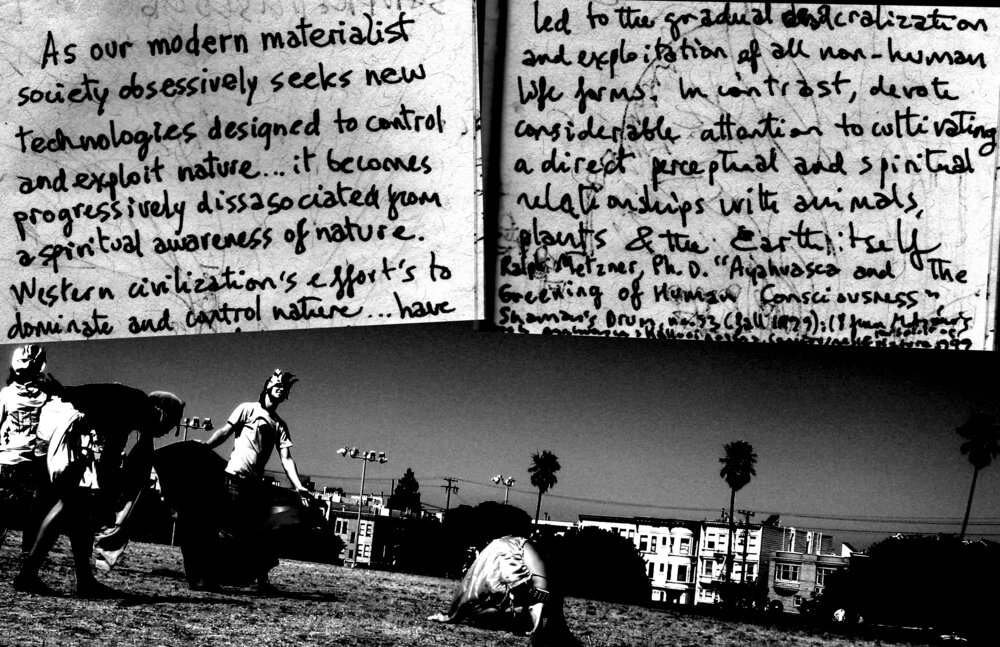 As our modern materialist
society obsessively seeks new
technologies designed to control
and exploit nature... it becomes
progressively dissasociated from
a spiritual awareness of nature.
Western civilization's effort's to
dominate and control nature... have
led to the gradual desacralization
and exploitation of all non-human
life forms. In contrast, devote
considerable attention to cultivating
a direct perceptual and spiritual
relationships with animals,
plants & the Earth itself
Ralph Metzner, Ph.D. "Ayahuasca and The
Greening of Human Consciousness"
Shaman's Drum no. 53 (fall 1999): 18 from Metzner's
1999